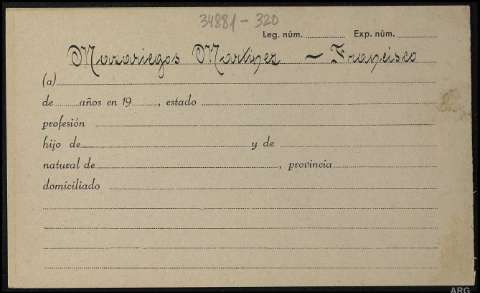 34881-320
Leg. núm. Exp. núm.
Mazariegos Martínez - Francisco
(a)
de años en 19 , estado
profesión
hijo de y de
natural de , provincia
domiciliado
ARG